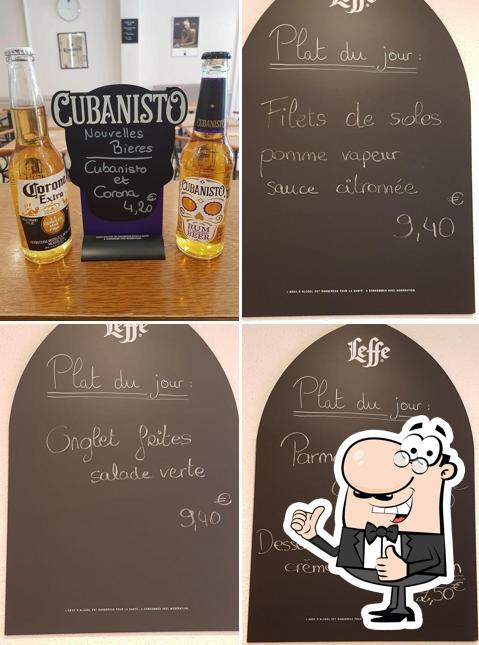 CUBANISTO
Nouvelles
Bieres
Cubanisto
et
Corona
4,20€
Corona
Extra
CUBANISTO
CUBANISTO
RUM
BEER
Leffe
Plat du jour :
Filets de soles
pomme vapeur
sauce citronnée
9,40€
L'ABUS D'ALCOOL EST DANGEREUX POUR LA SANTÉ. A CONSOMMER AVEC MODÉRATION.
Leffe
Plat du jour :
Onglet frites
salade verte
9,40€
L'ABUS D'ALCOOL EST DANGEREUX POUR LA SANTÉ. A CONSOMMER AVEC MODÉRATION.
Leffe
Plat du jour :
Parm
Dess
crème
2,50€
L'ABUS D'ALCOOL EST DANGEREUX POUR